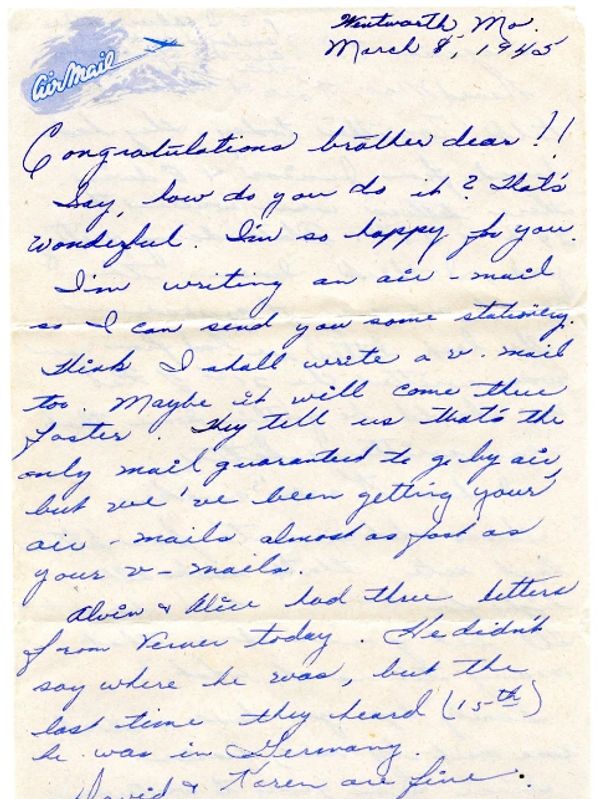 Air Mail
Wentworth Mo.
March 8, 1945
Congratulations brother dear!!
Say, how do you do it? That's
wonderful. I'm so happy for you.
I'm writing an air-mail
so I can send you some stationery.
Think I shall write a v. mail
too. Maybe it will come thru
faster. They tell us that's the
only mail guaranteed to go by air,
but we've been getting your
air-mails almost as fast as
your v-mails.
Alvin & Alice had three letters
from Verner today. He didn't
say where he was, but the
last time they heard (15th)
he was in Germany.
David & Karen are fine.